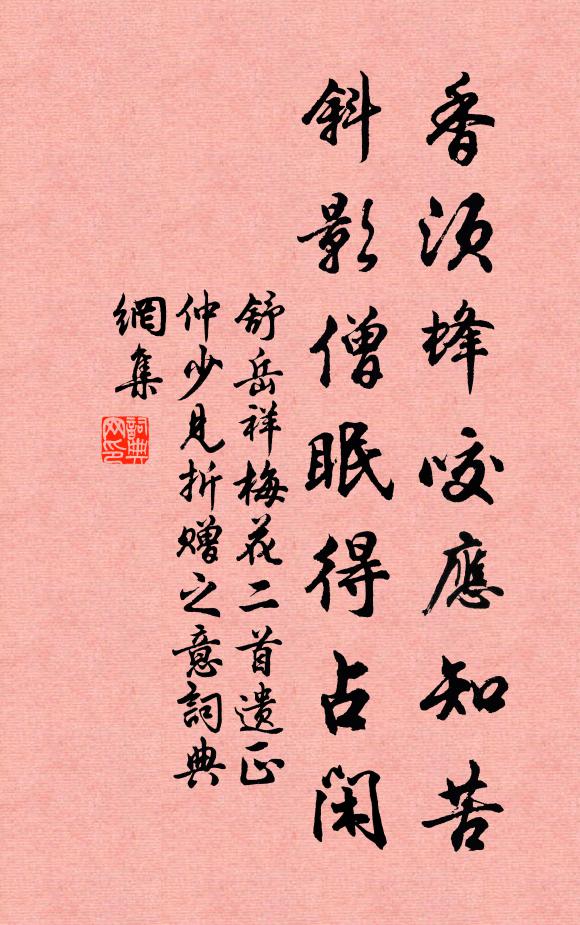 香須蜂咬應知苦
斜影僧眠得占閑
舒岳祥梅花二首遺正
仲少見折贈之意詞典
網集
詞典
网印